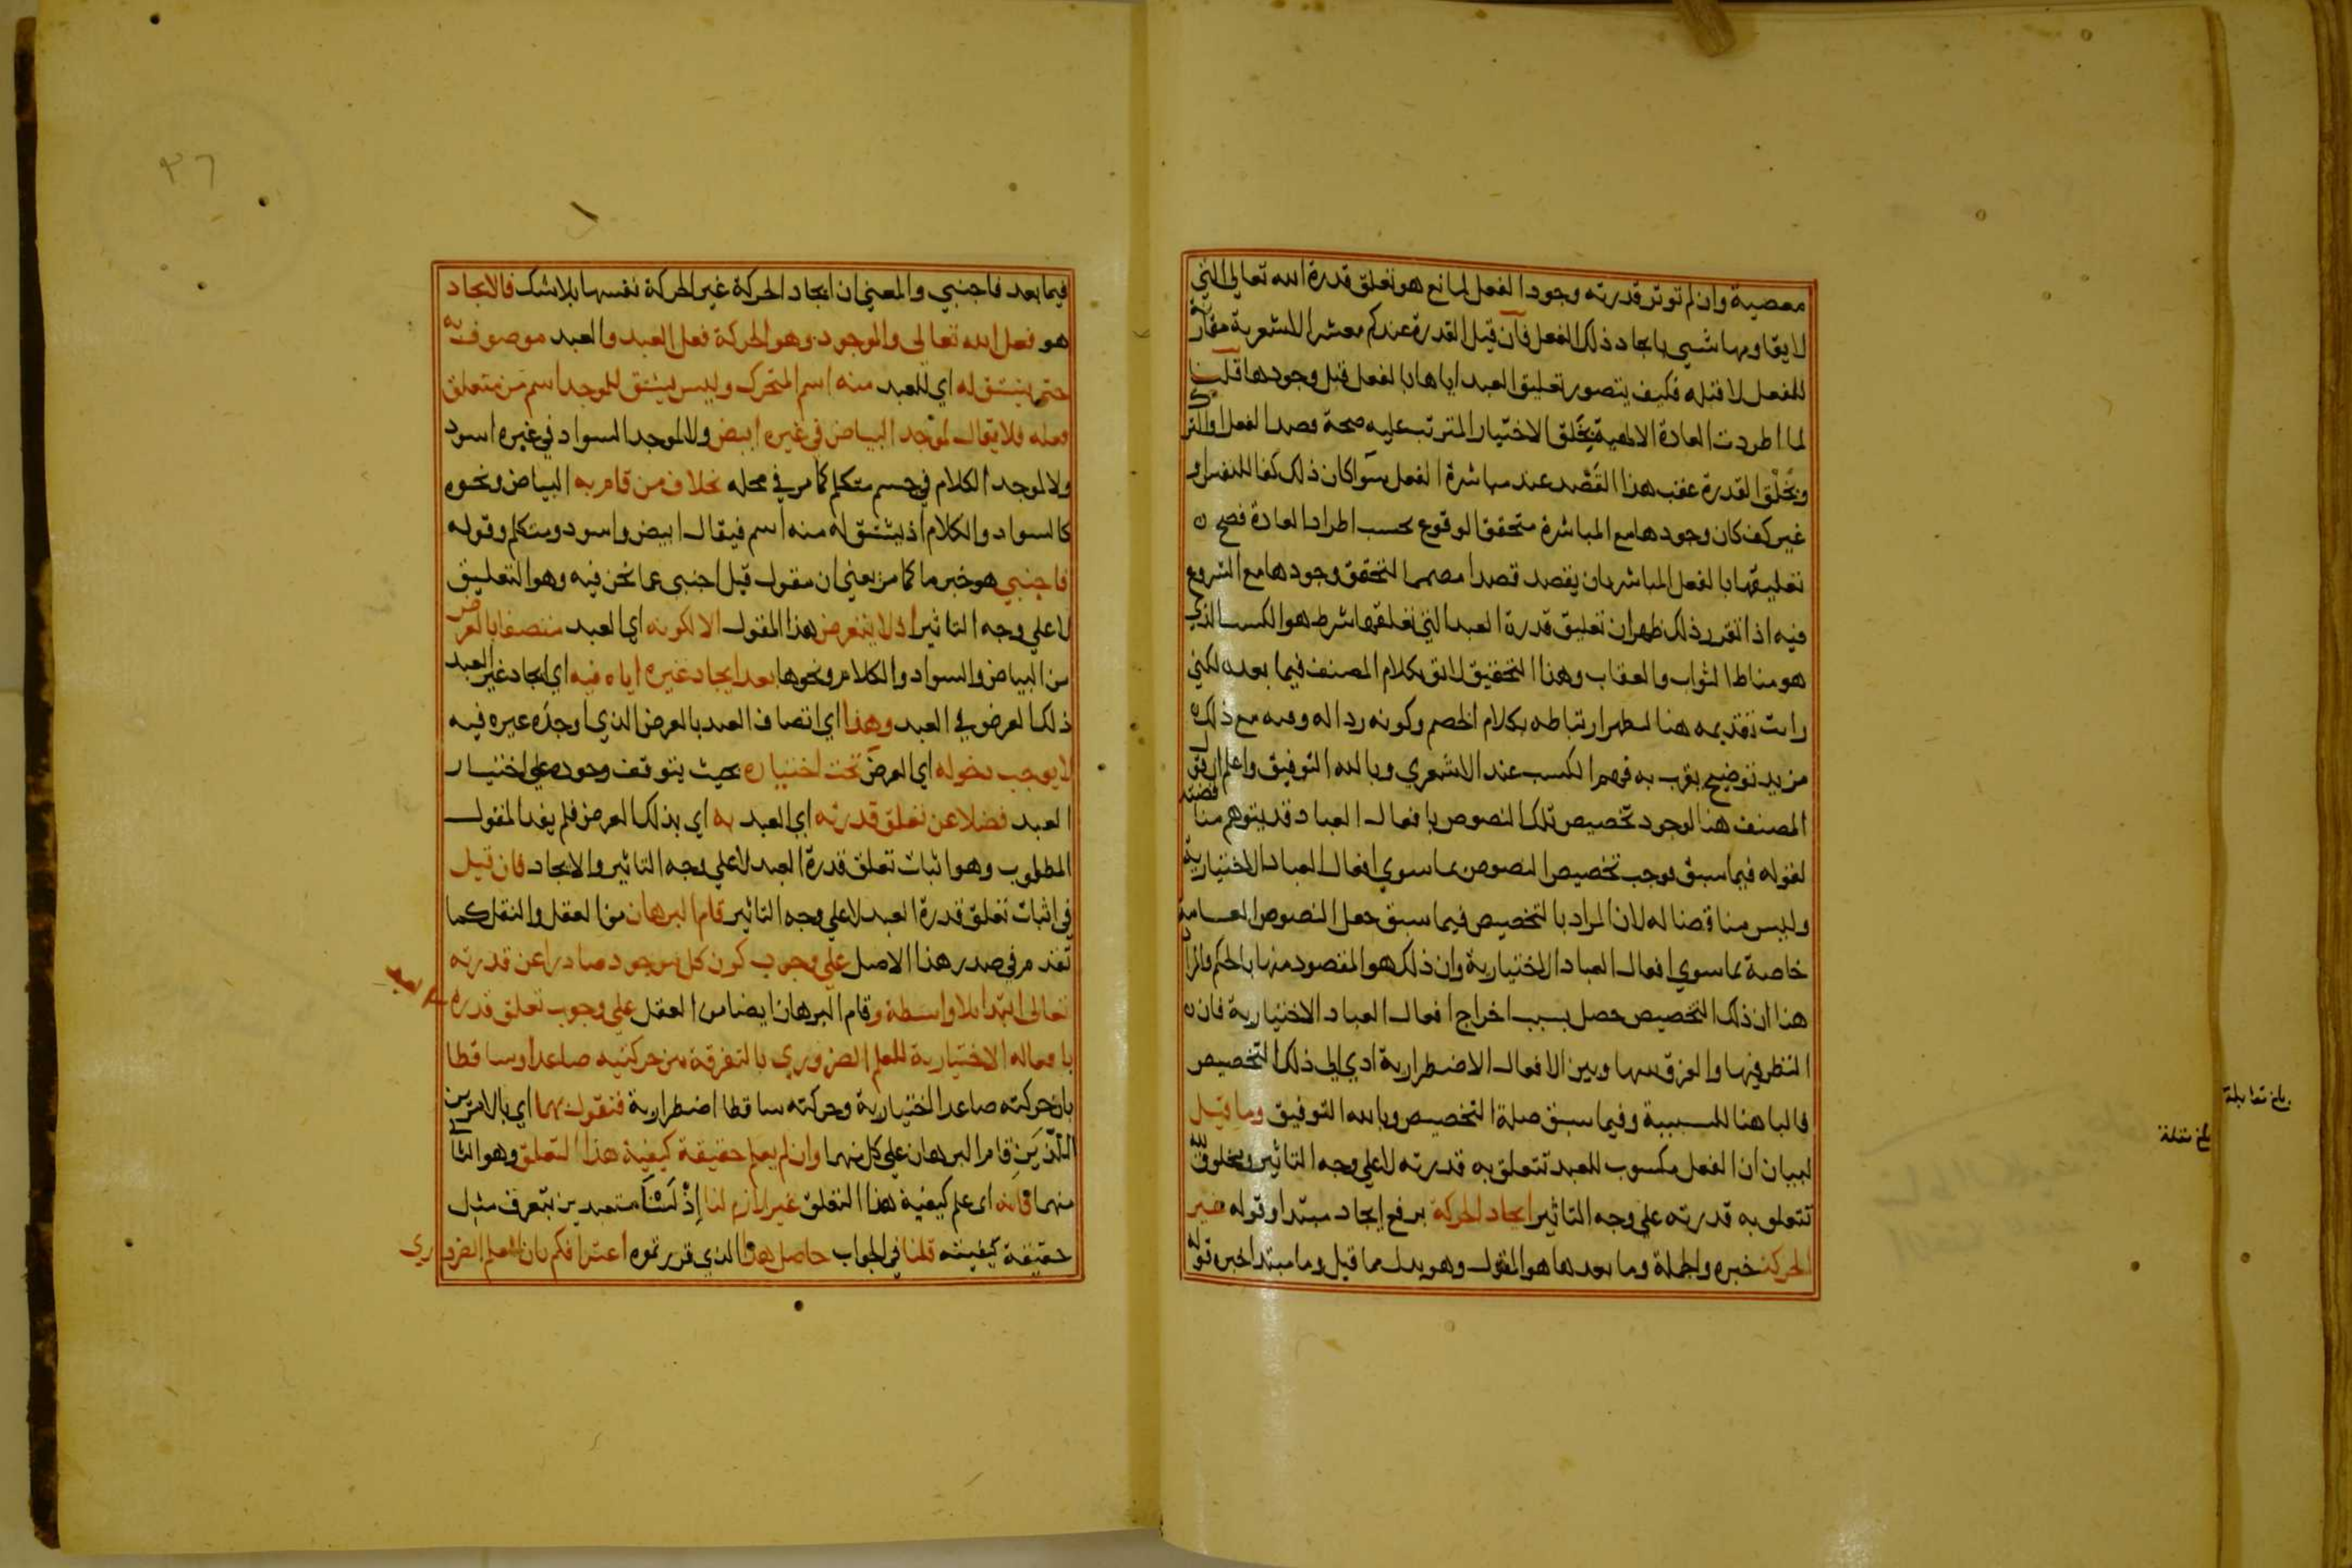 معصية وان لم توثر قدرته وجود الفعل لمانع هو تعلق قدرة الله تعالى التي
لا يقاومها شي بايجاد ذلك الفعل فان قيل القدرة عندكم معشر الاشعرية مقارنة
للفعل لا قبله فكيف يتصور تعليق العبد اياها بالفعل قبل وجودها قلنا
لما اطردت العادة الالهية بخلق الاختيار المترتب عليه صحة قصد الفعل او الترك
وبخلق القدرة عقب هذا القصد عند مباشرة الفعل سوا كان ذلك كفا للنفس او
غير كف كان وجودها مع المباشرة متحقق الوقوع بحسب اطراد العادة فصح
تعليقها بالفعل المباشر بان يقصد قصدا مصمما لتحقق وجودها مع الشروع
فيه اذا تقرر ذلك ظهر ان تعليق قدرة العبد التي تعلقها شرط هو الكسب الذي
هو مناط الثواب والعقاب وهذا التحقيق لائق بكلام المصنف فيما بعد لكني
رايت تقديمه هنا ليظهر ارتباطه بكلام الخصم وكونه ردا له وفيه مع ذلك
مزيد توضيح يقرب به فهم الكسب عند الاشعري وبالله التوفيق واعلم ان قول
المصنف هنا لوجود تخصيص تلك النصوص بافعال العباد قد يتوهم مناقضته
لقوله فيما سبق فوجب تخصيص النصوص بما سوي افعال العباد الاختيارية
وليس مناقضا له لان المراد بالتخصيص فيما سبق جعل النصوص العامة
خاصة بما سوي افعال العباد الاختيارية وان ذلك هو المقصود منها بالحكم والمراد
هنا ان ذلك التخصيص حصل بسبب اخراج افعال العباد الاختيارية فان
النظر فيها والفرق بينها وبين الافعال الاضطرارية ادي الي ذلك التخصيص
فالبا هنا للسببية وفيما سبق صلة التخصيص وبالله التوفيق وما قيل
لبيان ان الفعل مكسوب للعبد تتعلق به قدرته لا علي وجه التاثير ومخلوق لله
تتعلق به قدرته علي وجه التاثير ايجاد الحركة برفع ايجاد مبتدا وقوله غير
الحركة خبره والجملة وما بعدها هو المقول وهو بدل مما قيل وما مبتدا خبره قوله
بلغ مقابلة
بلغ مقابلة
٣٦
فيما بعد فاجنبي والمعني ان ايجاد الحركة غير الحركة نفسها بلا شك فالايجاد
هو فعل الله تعالى والموجود وهو الحركة فعل العبد والعبد موصوف به
حتى يشتق له اي للعبد منه اسم المتحرك وليس يشتق للموجد اسم من متعلق
فعله فلا يقال لموجد البياض في غيره ابيض ولا لموجد السواد في غيره اسود
ولا لموجد الكلام في جسم متكلم كما مر في محله بخلاف من قام به البياض ونحوه
كالسواد والكلام اذ يشتق له منه اسم فيقال ابيض واسود ومتكلم وقوله
فاجنبي هو خبر ما كما مر يعني ان مقول قيل اجنبي عما نحن فيه وهو التعليق
لا علي وجه التاثير اذ لا يتعرض هذا المقول الا لكونه اي العبد متصفا بالعرض
من البياض والسواد والكلام ونحوها بعد ايجاد غيره اياه فيه اي ايجاد غير العبد
ذلك العرض في العبد وهذا اي اتصاف العبد بالعرض الذي اوجده غيره فيه
لا يوجب دخوله اي العرض تحت اختياره بحيث يتوقف وجوده علي اختيار
العبد فضلا عن تعلق قدرته اي العبد به اي بذلك العرض فلم يفد المقول
المطلوب وهو اثبات تعلق قدرة العبد لا علي وجه التاثير والايجاد فان قيل
في اثبات تعلق قدرة العبد لا علي وجه التاثير قام البرهان من العقل والنقل كما
تقدم في صدر هذا الاصل علي وجوب كون كل موجود صادرا عن قدرته
تعالى ابتدا بلا واسطة وقام البرهان ايضا من العقل علي وجوب تعلق قدرة العبد
بافعاله الاختيارية للعلم الضروري بالتفرقة بين حركتيه صاعدا وساقطا
بان حركته صاعدا اختيارية وحركته ساقطا اضطرارية فنقول بهما اي بالامرين
اللذين قام البرهان علي كل منهما وان لم يعلم حقيقة كيفية هذا التعلق وهو الثاني
منهما فانه اي علم كيفية هذا التعلق غير لازم لنا إذ لسنا متعبدين بتعرف مثل
حقيقة كيفيته قلنا في الجواب حاصل هذا الذي قررتموه اعترافكم بان العلم الضروري